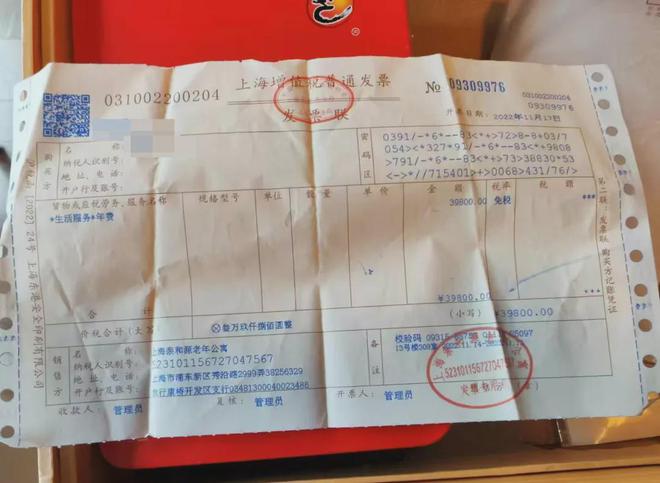 上海增值税普通发票
发票联
031002200204
№ 09309976
031002200204
09309976
开票日期: 2022年11月13日
购买方
名称:
纳税人识别号:
地址、电话:
开户行及账号:
密码区
0391/-*6*--83<*+>72>8-8+03/7
054><*<327*91/-*6*--83<*+9808
>791/-*6*--83<*+>73>38830*53
<->*//715401>+0068>431/76/>
货物或应税劳务、服务名称
规格型号
单位
数量
单价
金额
税率
税额
*生活服务*年费
39800.00
免税
***
合计
¥39800.00
***
价税合计(大写)
⊗叁万玖仟捌佰圆整
(小写) ¥39800.00
销售方
名称:
上海泰和源老年公寓
纳税人识别号:
523101156727047567
地址、电话:
上海市浦东新区秀沿路2999弄38256329
康桥开发区支行03481300040023486
备注
校验码
13号楼509室
收款人: 管理员
复核: 管理员
开票人: 管理员
第二联:发票联 购买方记账凭证
〔2022〕24号 上海东港安全印刷有限公司